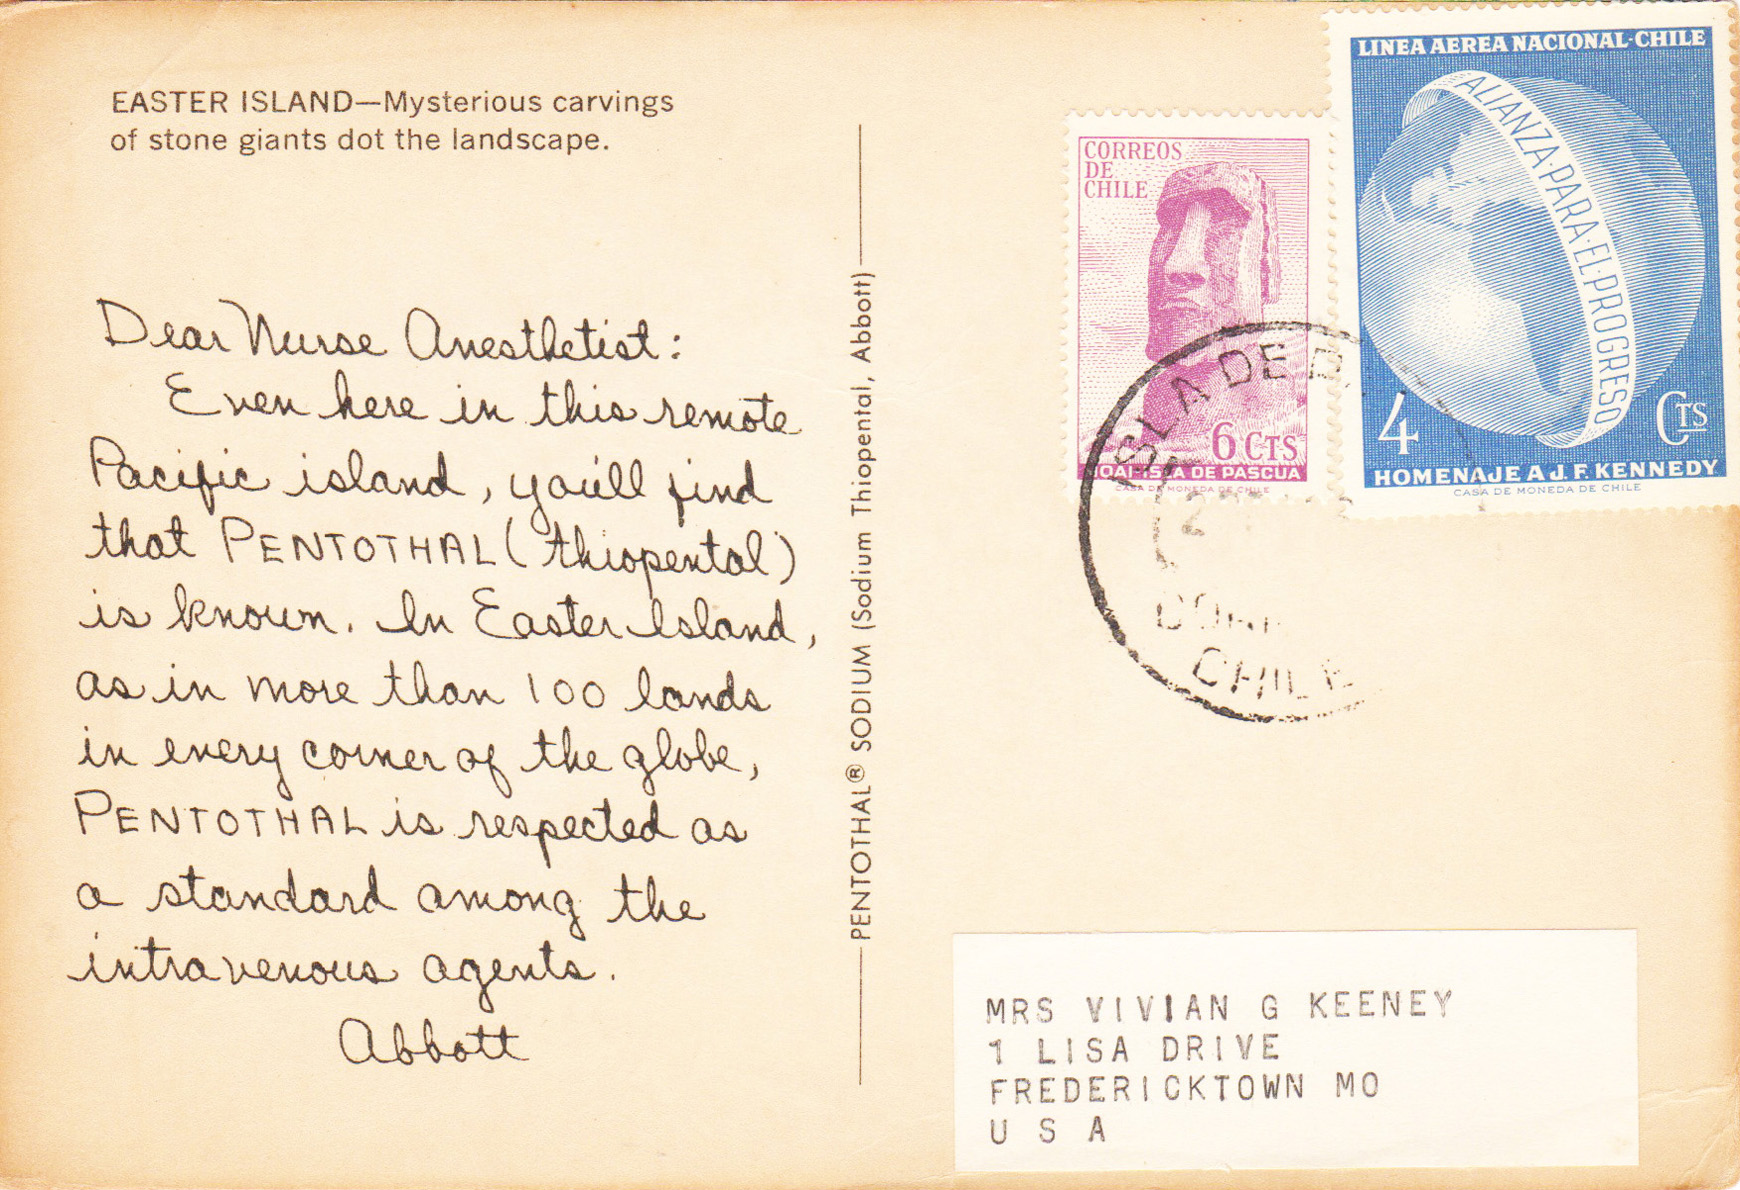 EASTER ISLAND—Mysterious carvings
of stone giants dot the landscape.
Dear Nurse Anesthetist:
Even here in this remote
Pacific island, you'll find
that PENTOTHAL (thiopental)
is known. In Easter Island,
as in more than 100 lands
in every corner of the globe,
PENTOTHAL is respected as
a standard among the
intravenous agents.
Abbott
PENTOTHAL® SODIUM (Sodium Thiopental, Abbott)
CORREOS
DE
CHILE
6 CTS
MOAI-ISLA DE PASCUA
CASA DE MONEDA DE CHILE
LINEA AEREA NACIONAL-CHILE
ALIANZA·PARA·EL·PROGRESO
4 CTS
HOMENAJE A J. F. KENNEDY
CASA DE MONEDA DE CHILE
ISLA DE
CHILE
MRS VIVIAN G KEENEY
1 LISA DRIVE
FREDERICKTOWN MO
U S A